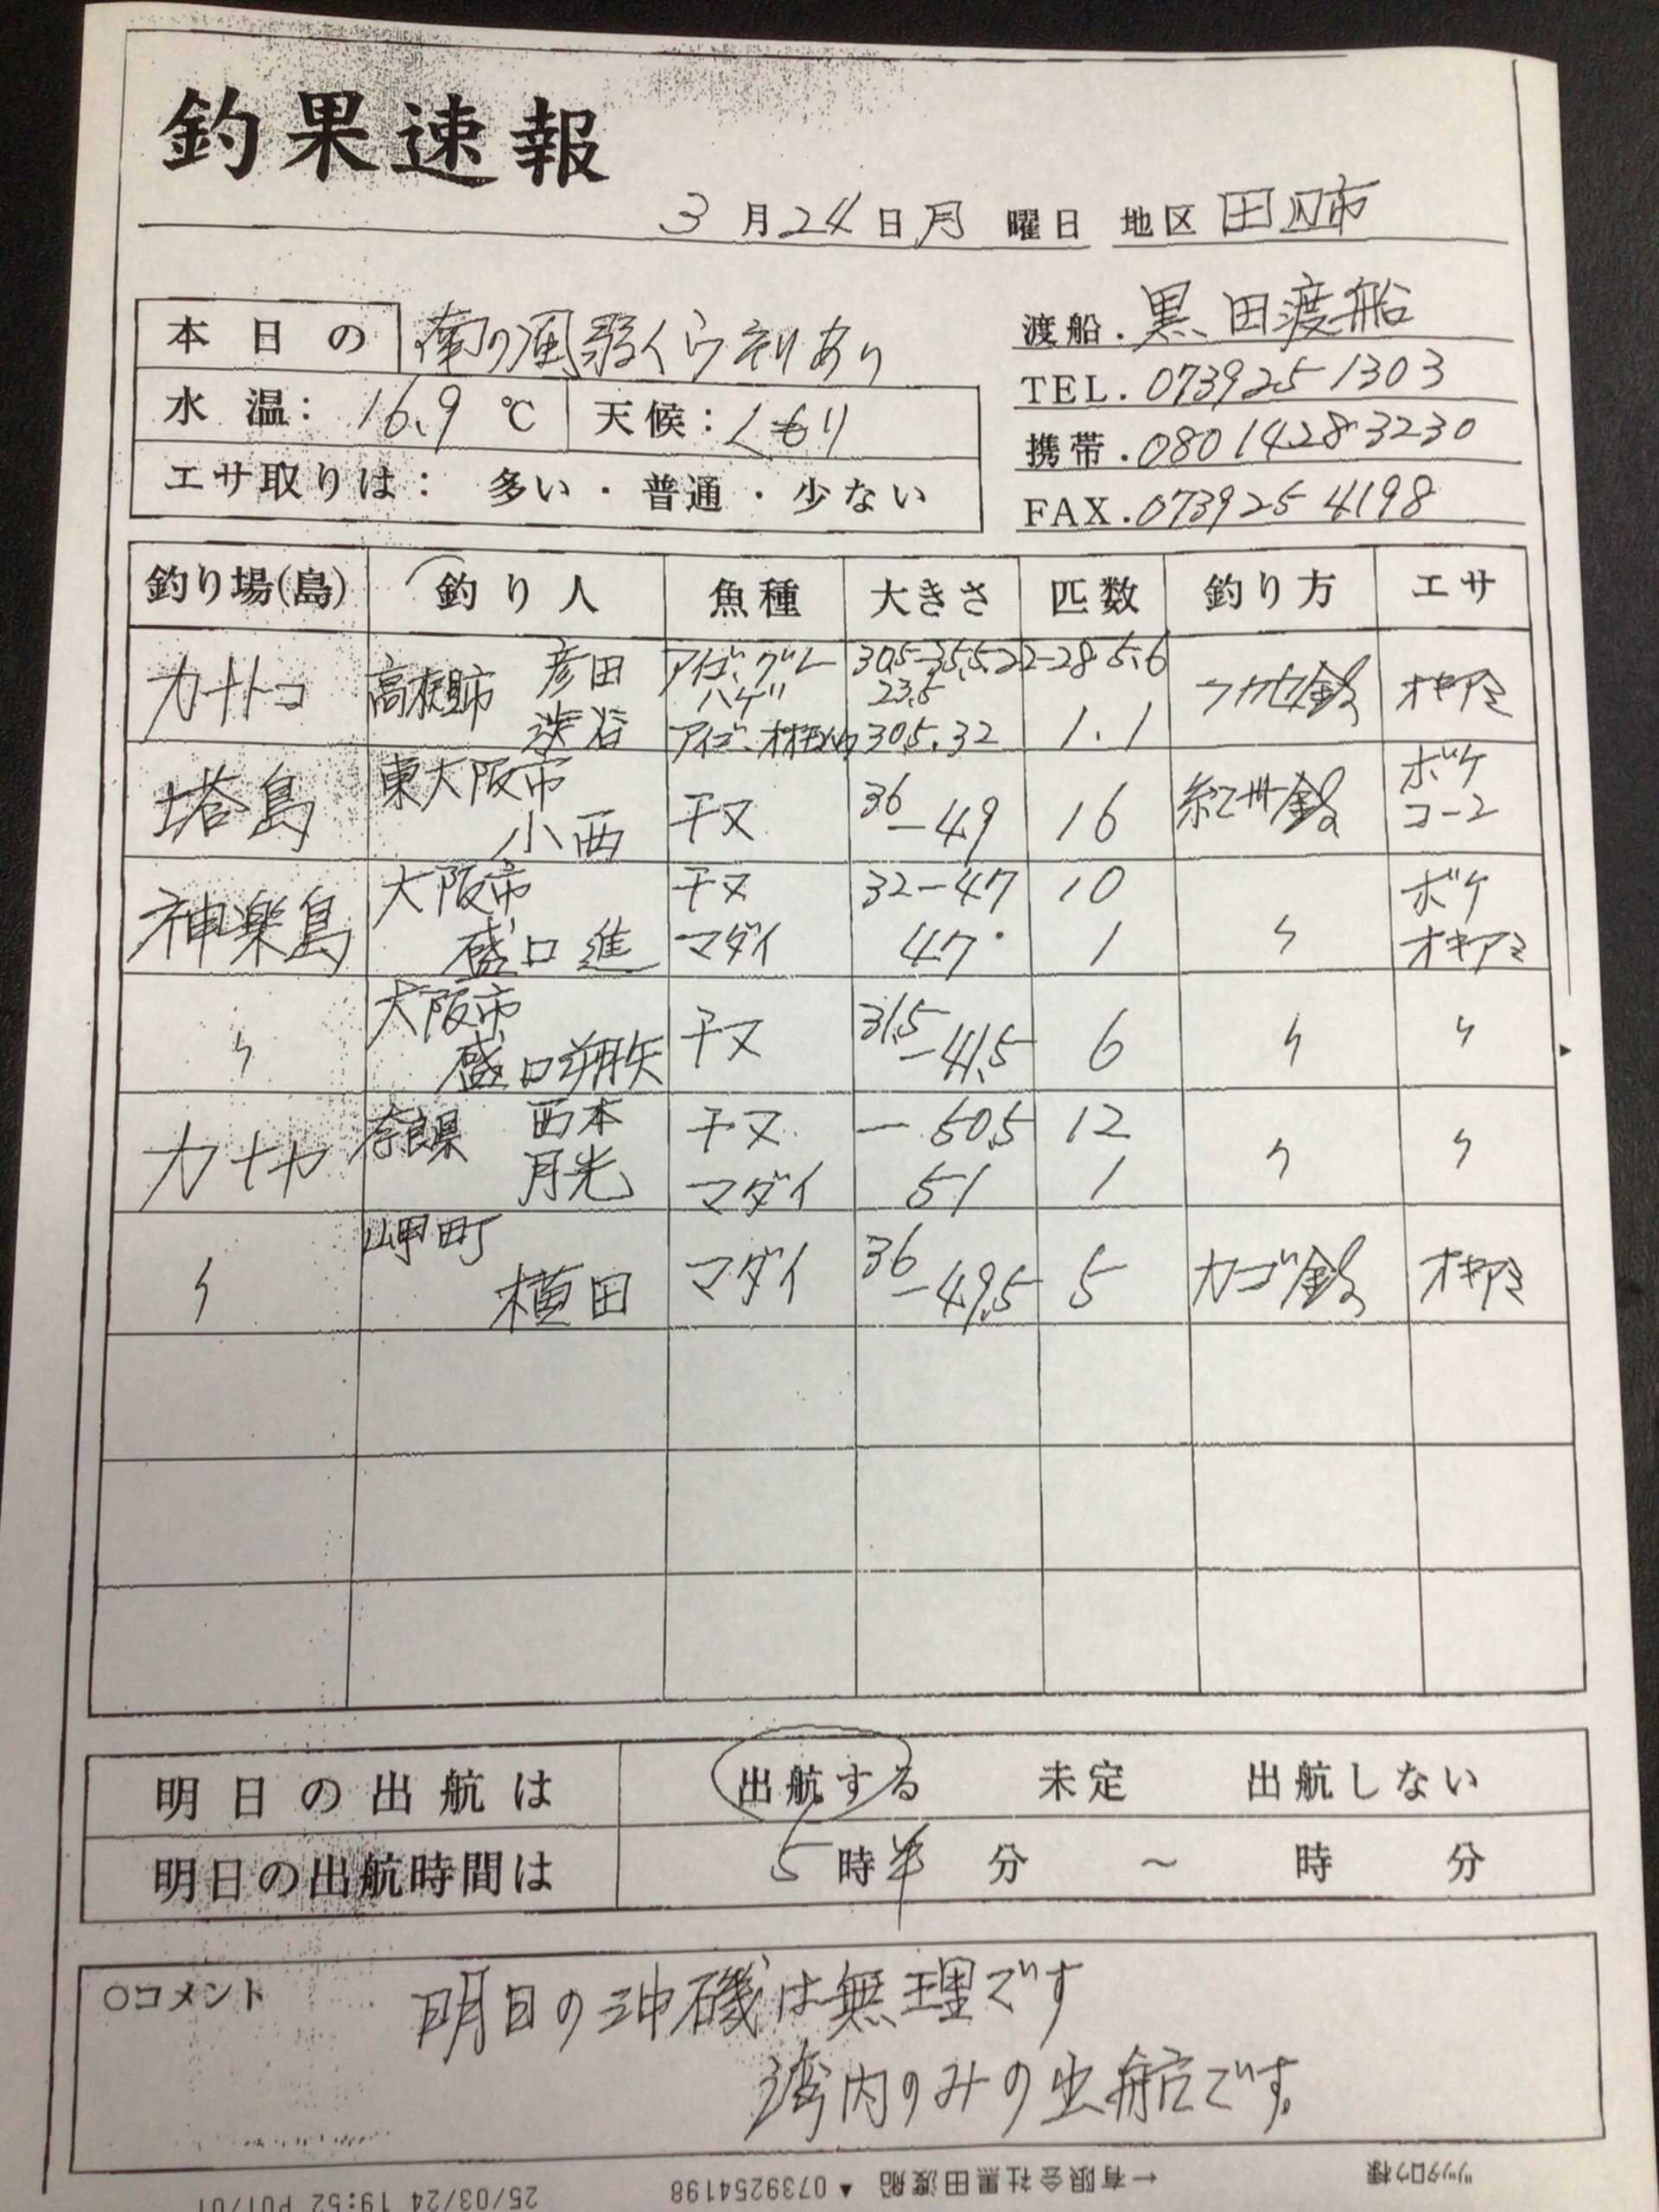 釣果速報
3月24日月曜日 地区 田辺市
本日の 南の風弱くウネリあり
渡船.黒田渡船
水温: 16.9℃ 天候:くもり
TEL.0739251303
携帯.08014283230
エサ取りは: 多い・普通・少ない
FAX.0739254198
釣り場(島) 釣り人 魚種 大きさ 匹数 釣り方 エサ
カナトコ 高槻市 彦田 アイゴ、グレ 30.5-35.5、22-28 5、6 フカセ釣 オキアミ
ハゲ 23.5
渋谷 アイゴ、 30.5、32 1、1
塔島 東大阪市 小西 チヌ 36-49 16 紀州釣 ボケ コーン
神楽島 大阪市 盛口進 チヌ 32-47 10 〃 ボケ
マダイ 47 1 オキアミ
〃 大阪市 盛口翔矢 チヌ 31.5-41.5 6 〃 〃
カナヤ 奈良県 西本 チヌ -50.5 12 〃 〃
月光 マダイ 51 1
〃 岬町 横田 マダイ 36-49.5 5 カゴ釣 オキアミ
明日の出航は 出航する 未定 出航しない
明日の出航時間は 5時半 分 ～ 時 分
○コメント 明日の沖磯は無理です
湾内のみの出航です。
25/03/24 19:52 P01/01 ←有限会社黒田渡船 ▲ 0739254198 ツッタロウ様